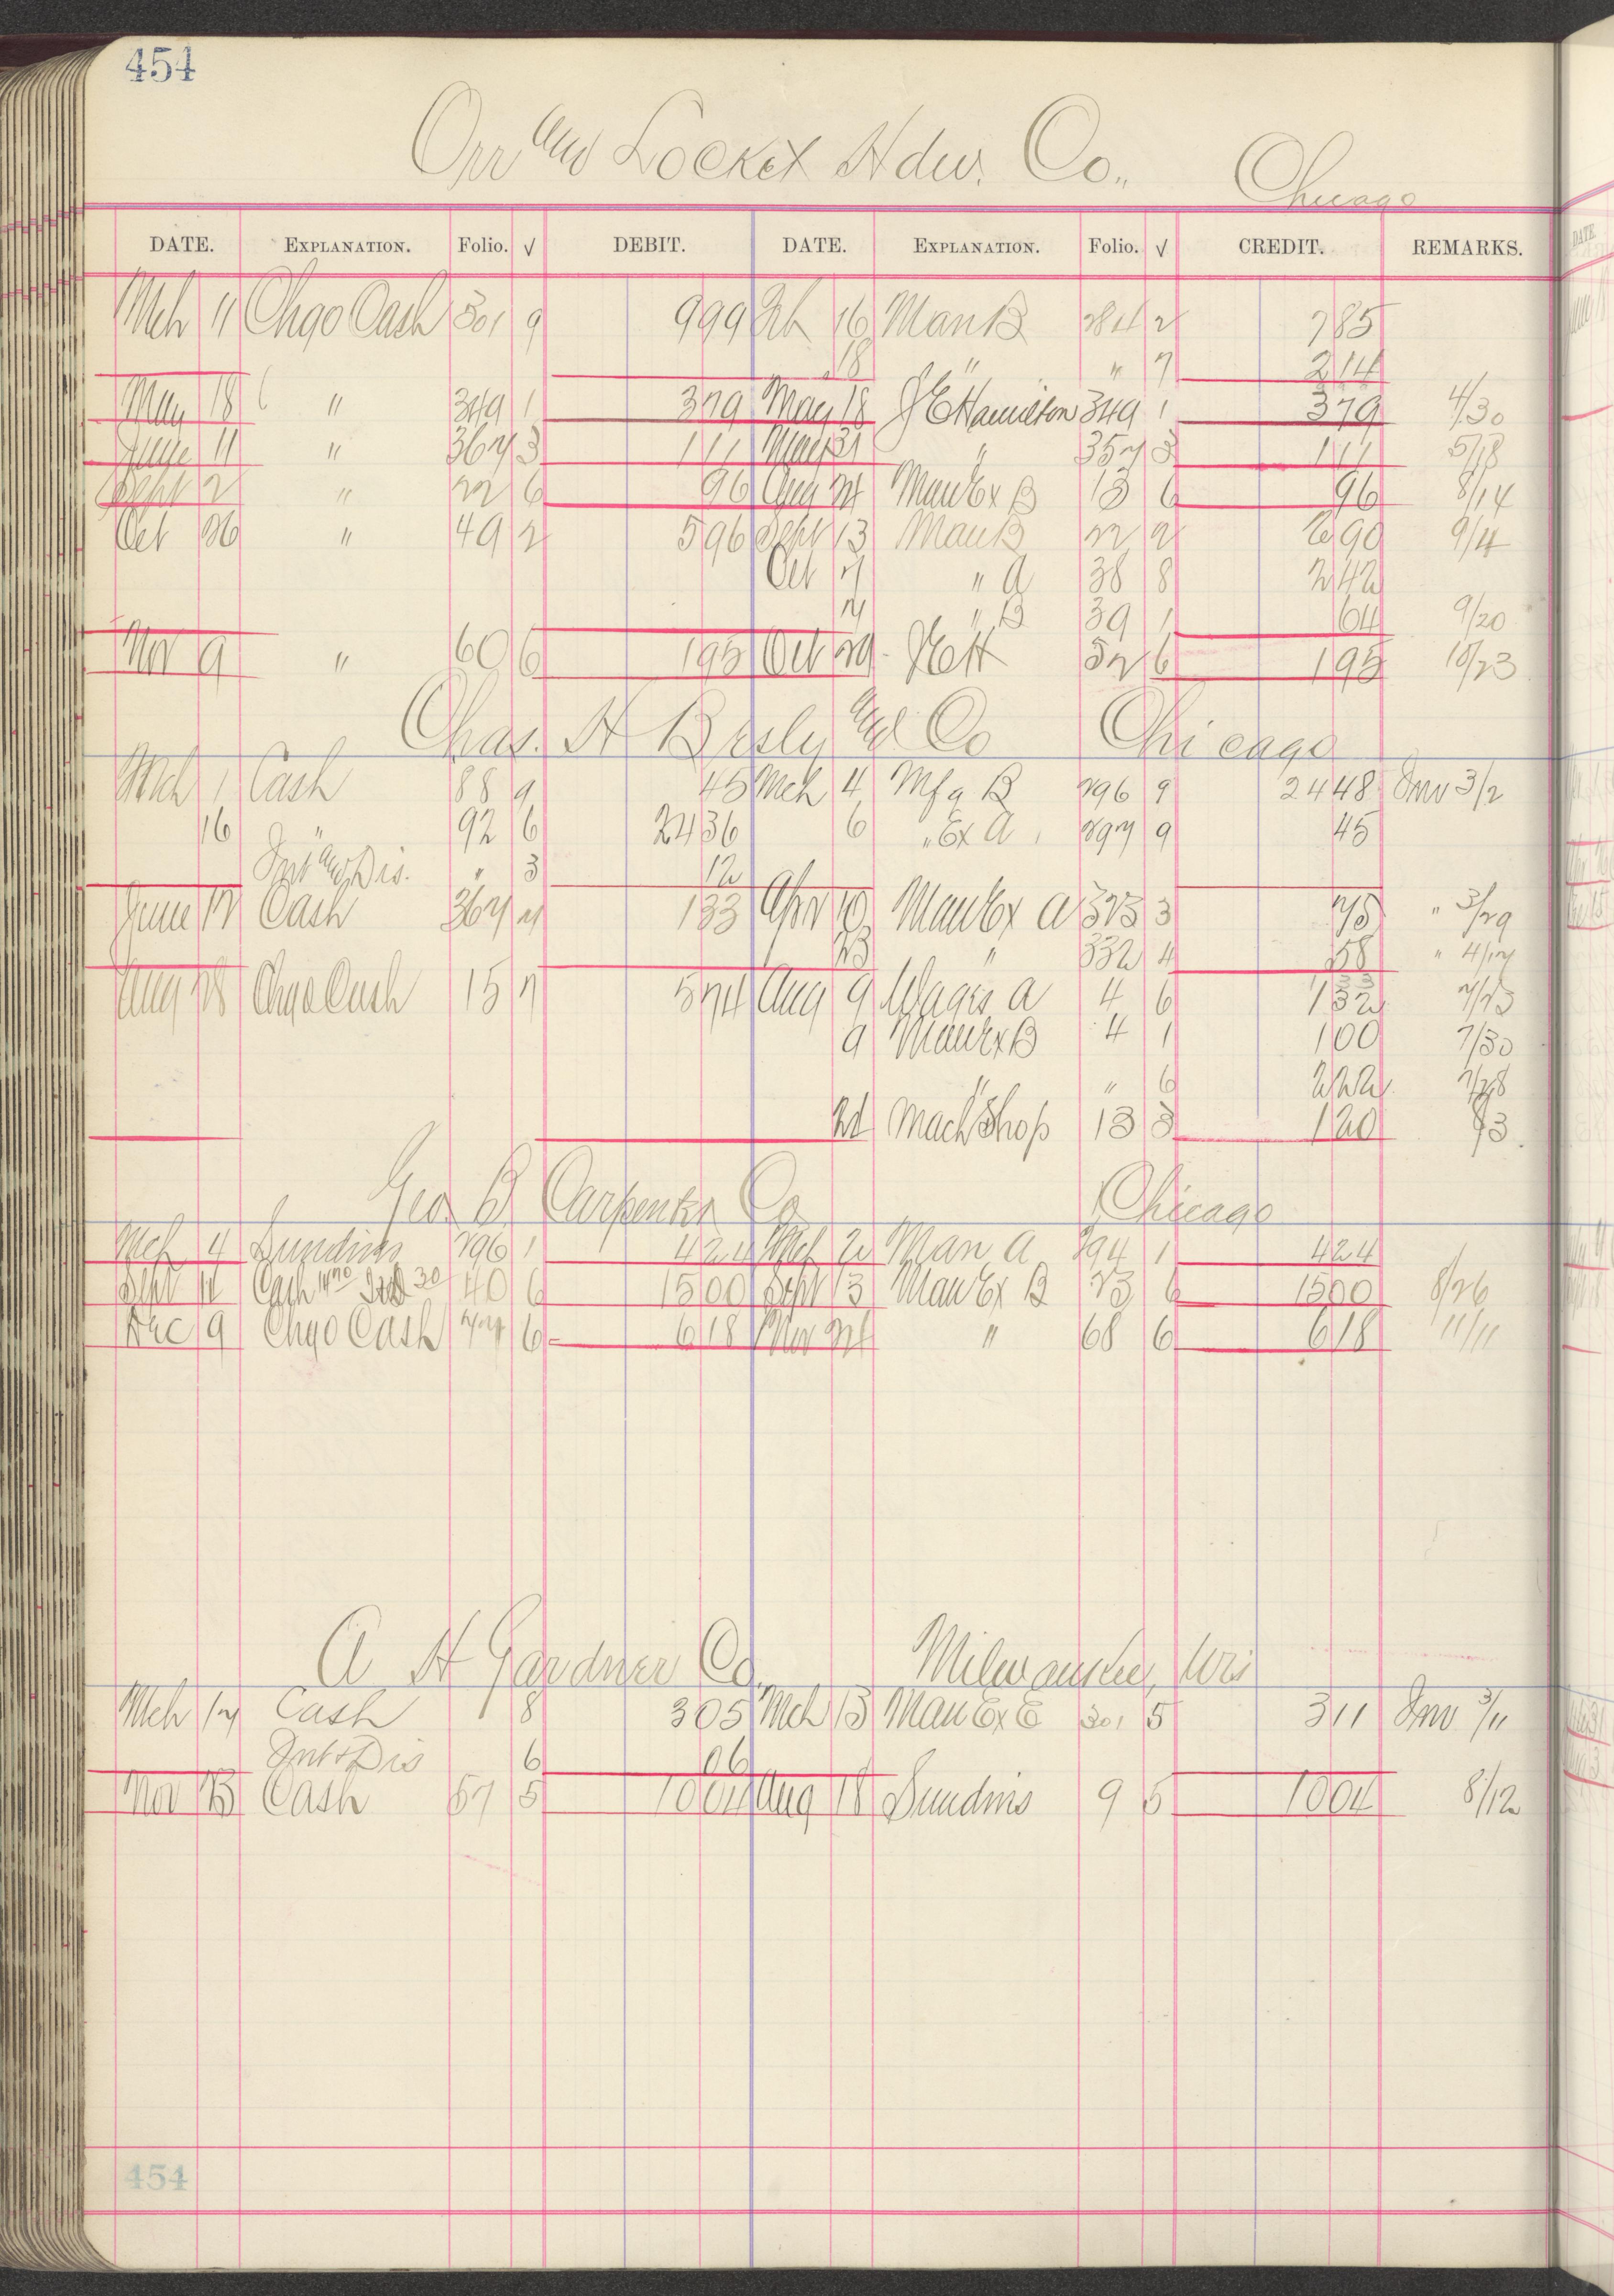 454
Orr and Locket Hdw. Co., Chicago
DATE. EXPLANATION. Folio. √ DEBIT. DATE. EXPLANATION. Folio. √ CREDIT. REMARKS.
Mch 11 Chgo Cash 301 9 999 Feb 16 Man B 284 2 785
18 " " 7 214
May 18 " 349 1 379 May 18 J E Hamilton 349 1 379 4/30
June 11 " 367 3 111 May 31 " 357 3 111 5/18
Sept 2 " 22 6 96 Aug 24 Man Ex B 13 6 96 8/14
Oct 26 " 49 2 596 Sept 13 Man B 22 2 290 9/4
Oct 7 " A 38 8 242
7 " B 39 1 64 9/20
Nov 9 " 60 6 195 Oct 29 Nett 52 6 195 10/23
Chas. H Besly and Co Chicago
Mch 1 Cash 88 9 45 Mch 4 Mfg B 296 9 2448 Inv 3/2
16 " 92 6 2436 6 " Ex A 297 9 45
Int and Dis. " 3 12
June 12 Cash 367 4 133 Apr 10 Man Ex A 323 3 75 " 3/29
23 " 332 4 58 " 4/17
Aug 28 Chgo Cash 15 7 574 Aug 9 Wages A 4 6 132 7/23
9 Man Ex B 4 1 100 7/30
" " 6 222 7/28
24 Mach Shop 13 3 120 8/3
Geo B Carpenter Co Chicago
Mch 4 Sundries 296 1 424 Mch 2 Man A 294 1 424
Sept 11 Cash 1470 Dis 30 40 6 1500 Sept 13 Man Ex B 23 6 1500 8/26
Dec 9 Chgo Cash 77 6 618 Nov 24 " 68 6 618 11/11
A H Gardner Co. Milwaukee, Wis
Mch 17 Cash 8 305 Mch 13 Man Ex E 301 5 311 Inv 3/11
Int & Dis 6 06
Nov 23 Cash 67 5 1004 Aug 18 Sundries 9 5 1004 8/12
454